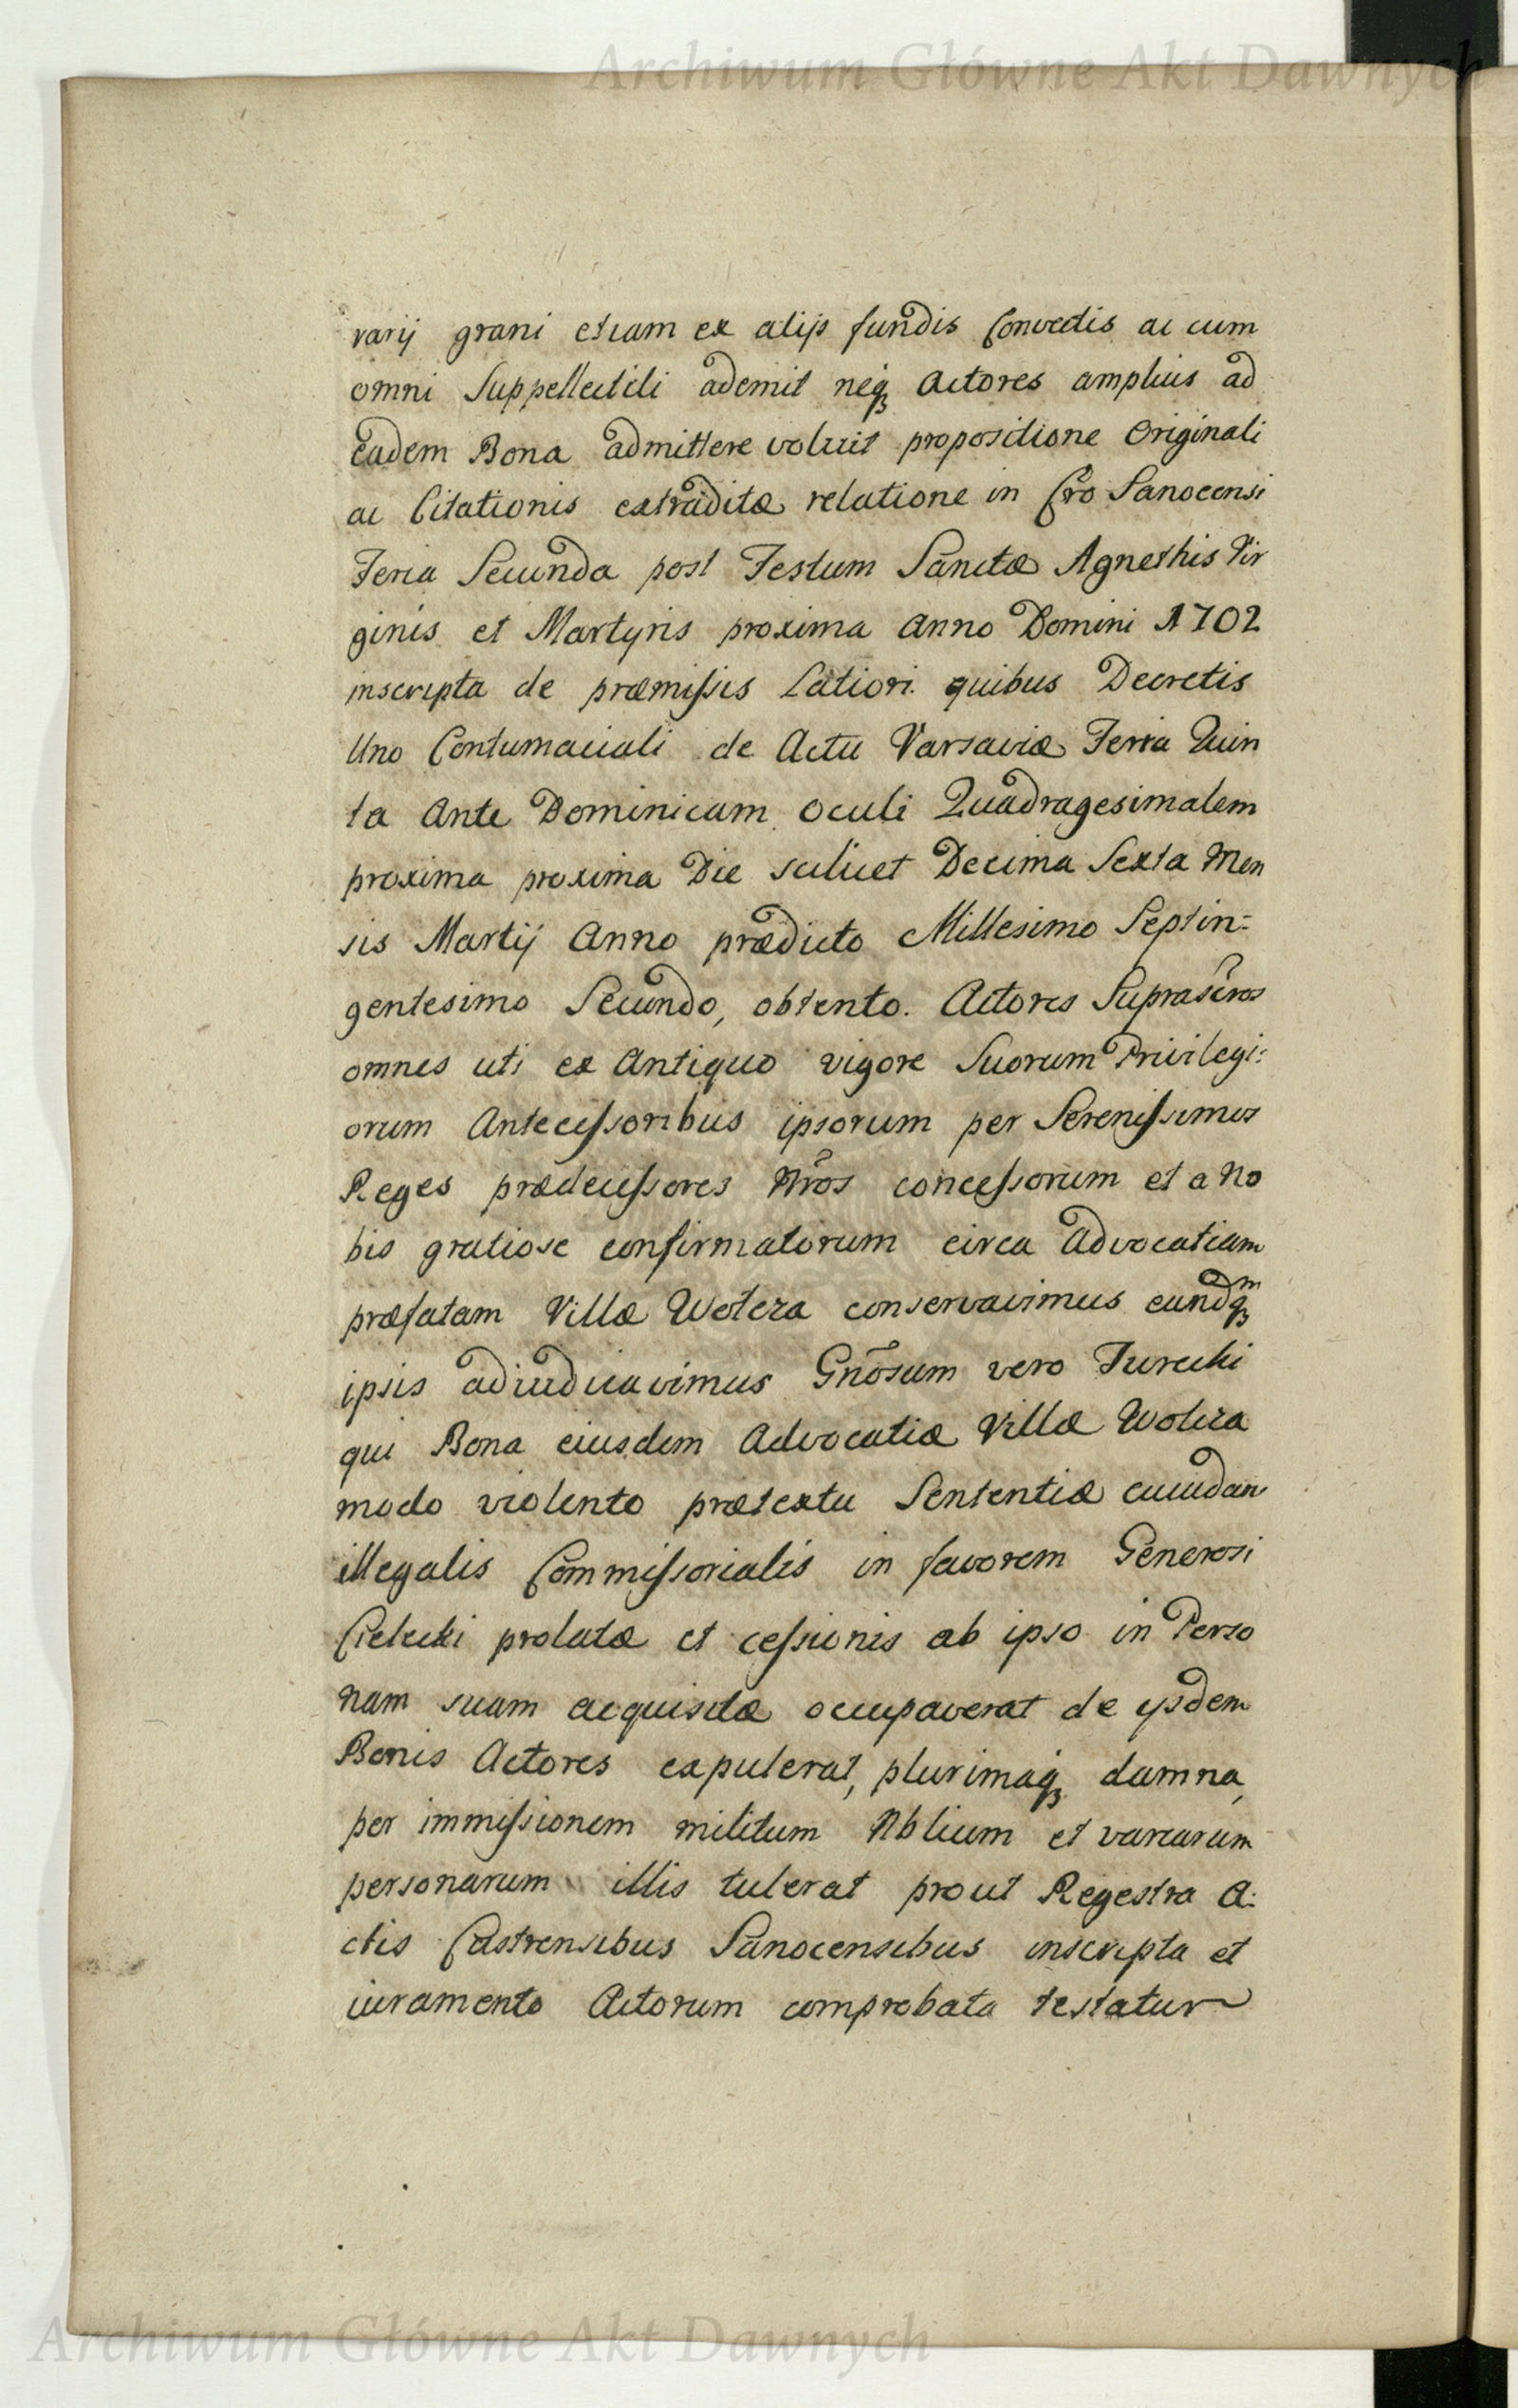 Archiwum Główne Akt Dawnych
varij grani etiam ex alijs fundis Convectis ac cum
omni Suppellectili ademit neqꝫ Actores amplius ad
eadem Bona admittere voluit propositione Originali
ac Citationis extraditæ relatione in Cro Sanocensi
Feria Secunda post Festum Sanctæ Agnethis Vir
ginis et Martyris proxima Anno Domini 1702
inscripta de præmissis Latiori quibus Decretis
Uno Contumaciali de Actu Varsaviæ Feria Quin
ta Ante Dominicam Oculi Quadragesimalem
proxima proxima Die scilicet Decima Sexta Men
sis Martij Anno prædicto Millesimo Septin=
gentesimo Secundo, obtento. Actores Suprascros
omnes uti ex Antiquo vigore Suorum Privilegi:
orum Antecessoribus ipsorum per Serenissimos
Reges prædecessores Nros concessorum et a No
bis gratiose confirmatorum circa Advocatiam
præfatam Villæ Wolcza conservavimus eandmqꝫ
ipsis adiudicavimus Gnosum vero Turecki
qui Bona eiusdem Advocatiæ Villæ Wolcza
modo violento prætextu Sententiæ cuiudam
illegalis Commissorialis in favorem Generosi
Cielecki prolatæ et cessionis ab ipso in Perso
nam suam acquisitæ occupaverat de ijsdem
Bonis Actores expulerat, plurimaqꝫ damna,
per immissionem militum Nblium et variarum
personarum illis tulerat prout Regestra A:
ctis Castrensibus Sanocensibus inscripta et
iuramento Actorum comprobata testatur
Archiwum Główne Akt Dawnych